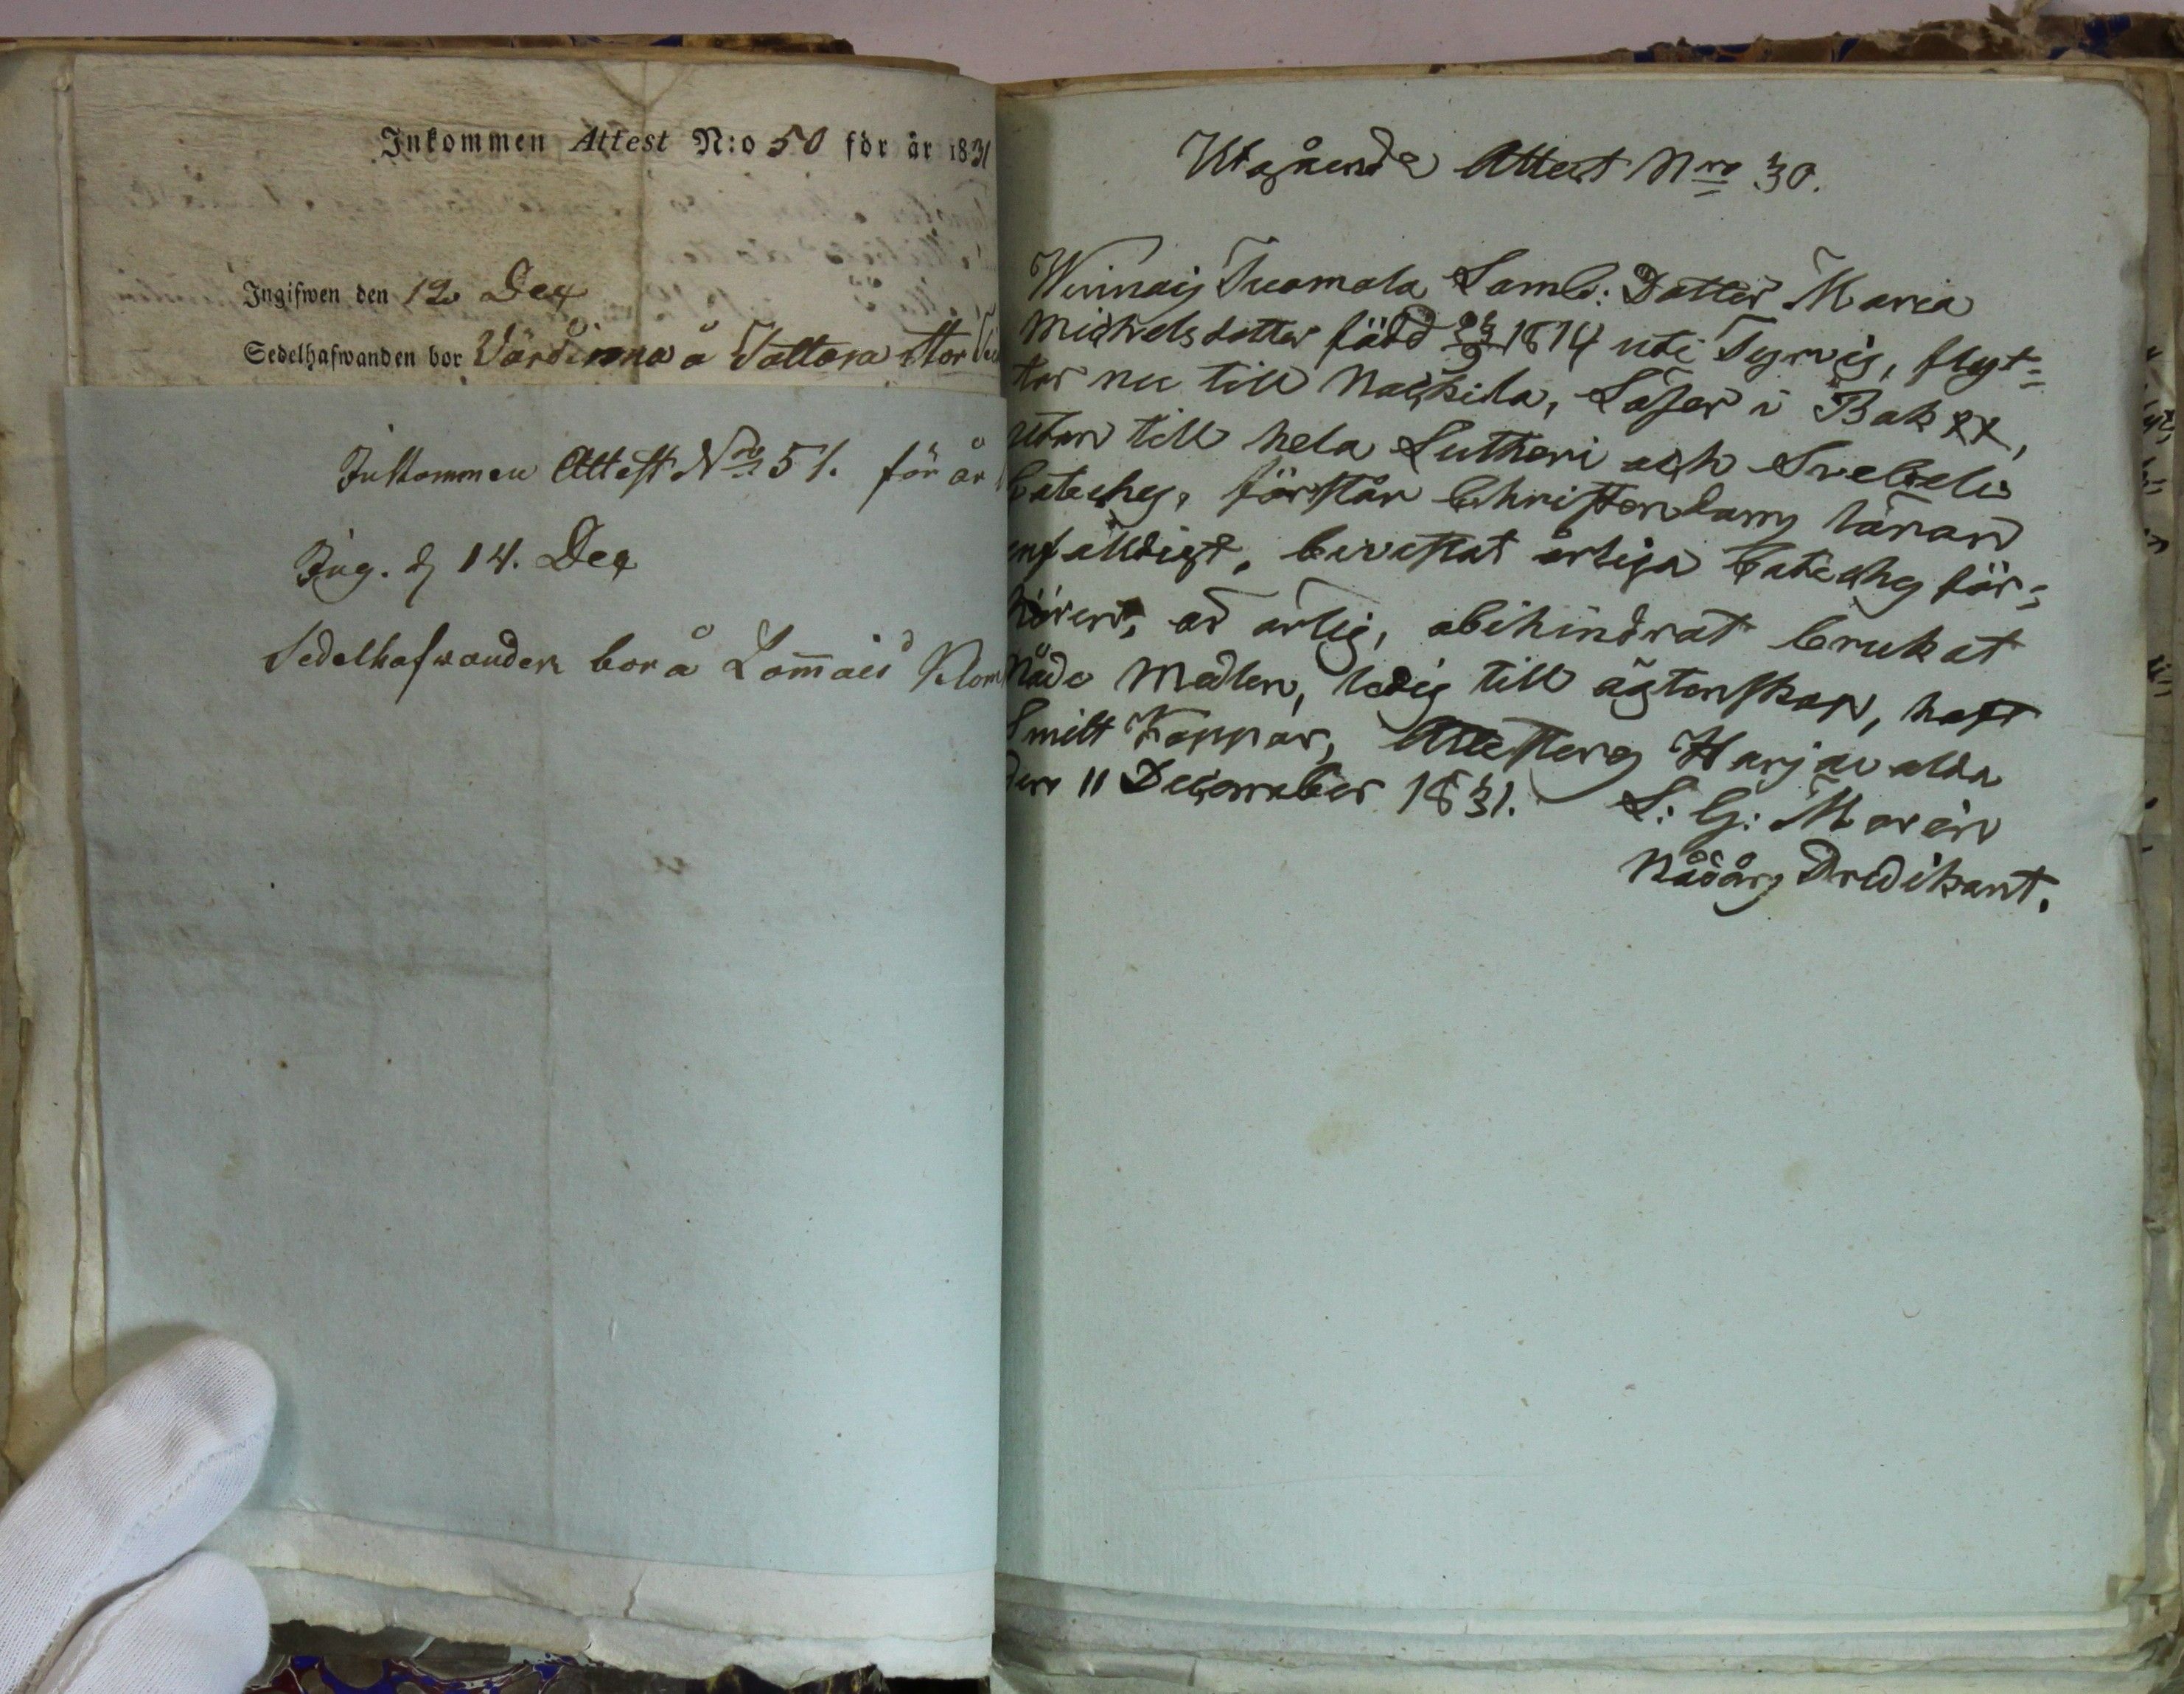 Inkommen Attest N:o 50 för år 1831
Ingifwen den 12 Dec
Sedelhafwanden bor Värdinna å Tattara Stor
Inkommen Attest Nro 51. för år
Ing. d 14. Dec
Sedelhafwanden bor å Lom̄ais
Utgående Attest Nro 30.
Winnais Tuomola Samb: Dotter Maria
Michelsdotter född 1814 uti Tyrvis, flyt=
tar nu till Nackila, Läser i Bok xx,
utan till hela Lutheri och Svebelii
Cateches, förstår Christendoms läran
enfalldigt, bevistat årliga Cateches för=
hören, är ärlig, obehindrat brukat
Nåde Medlen, ledig till ägtenskap, haft
Smitt Koppor, Attesteras Harjavalda
den 11 December 1831. S: G: Moren
Nådårs Predikant.